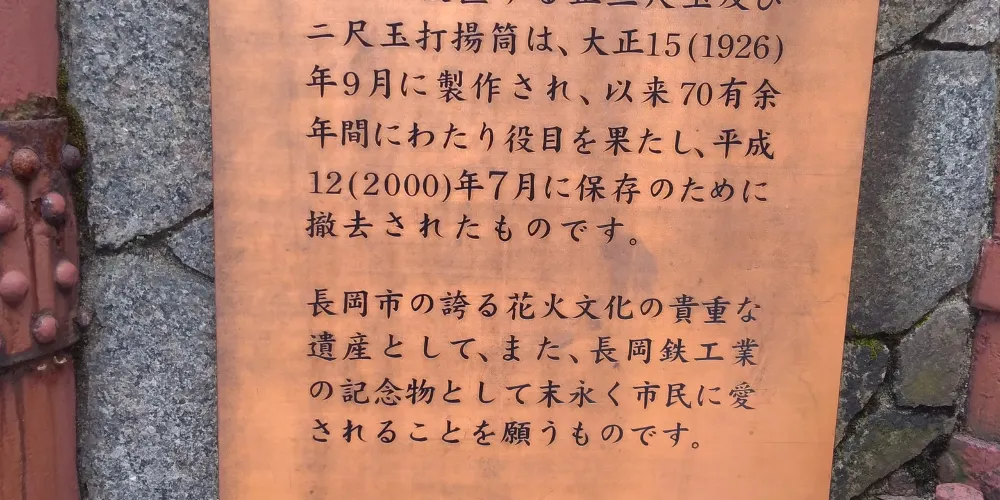 二尺玉打揚筒は、大正15(1926)
年9月に製作され、以来70有余
年間にわたり役目を果たし、平成
12(2000)年7月に保存のために
撤去されたものです。
長岡市の誇る花火文化の貴重な
遺産として、また、長岡鉄工業
の記念物として末永く市民に愛
されることを願うものです。